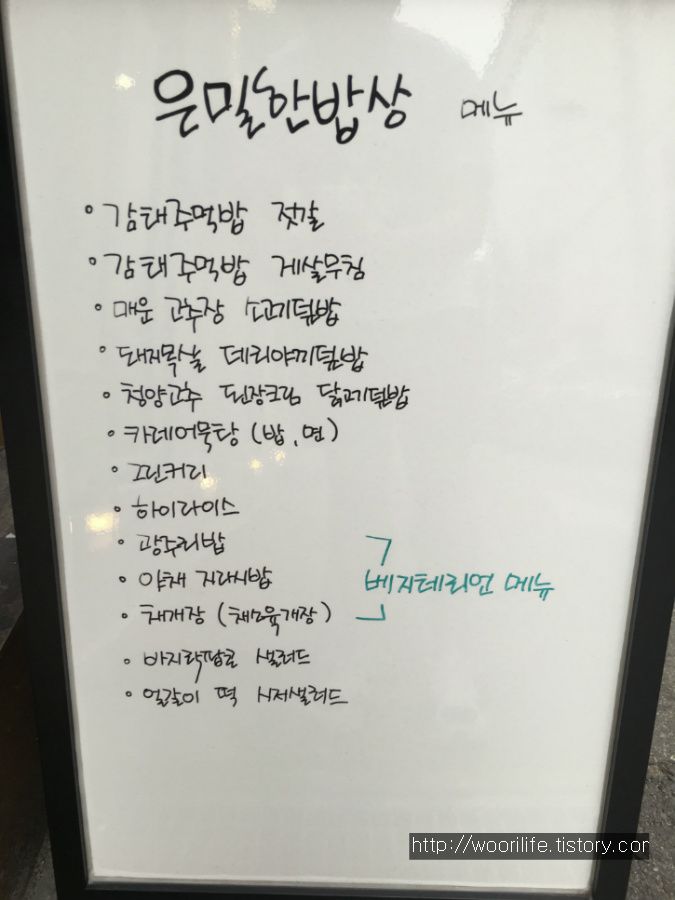 은밀한밥상 메뉴
감태주먹밥 젓갈
감태주먹밥 게살무침
매운 고추장 소고기덮밥
돼지목살 데리야끼덮밥
청양고추 된장크림 닭고기덮밥
카레어묵탕 (밥, 면)
그린커리
하이라이스
광주리밥
야채 지라시밥
베지테리언 메뉴
채개장 (채소육개장)
바지락팝콘 샐러드
얼갈이 떡 시저샐러드
http://woorilife.tistory.cor